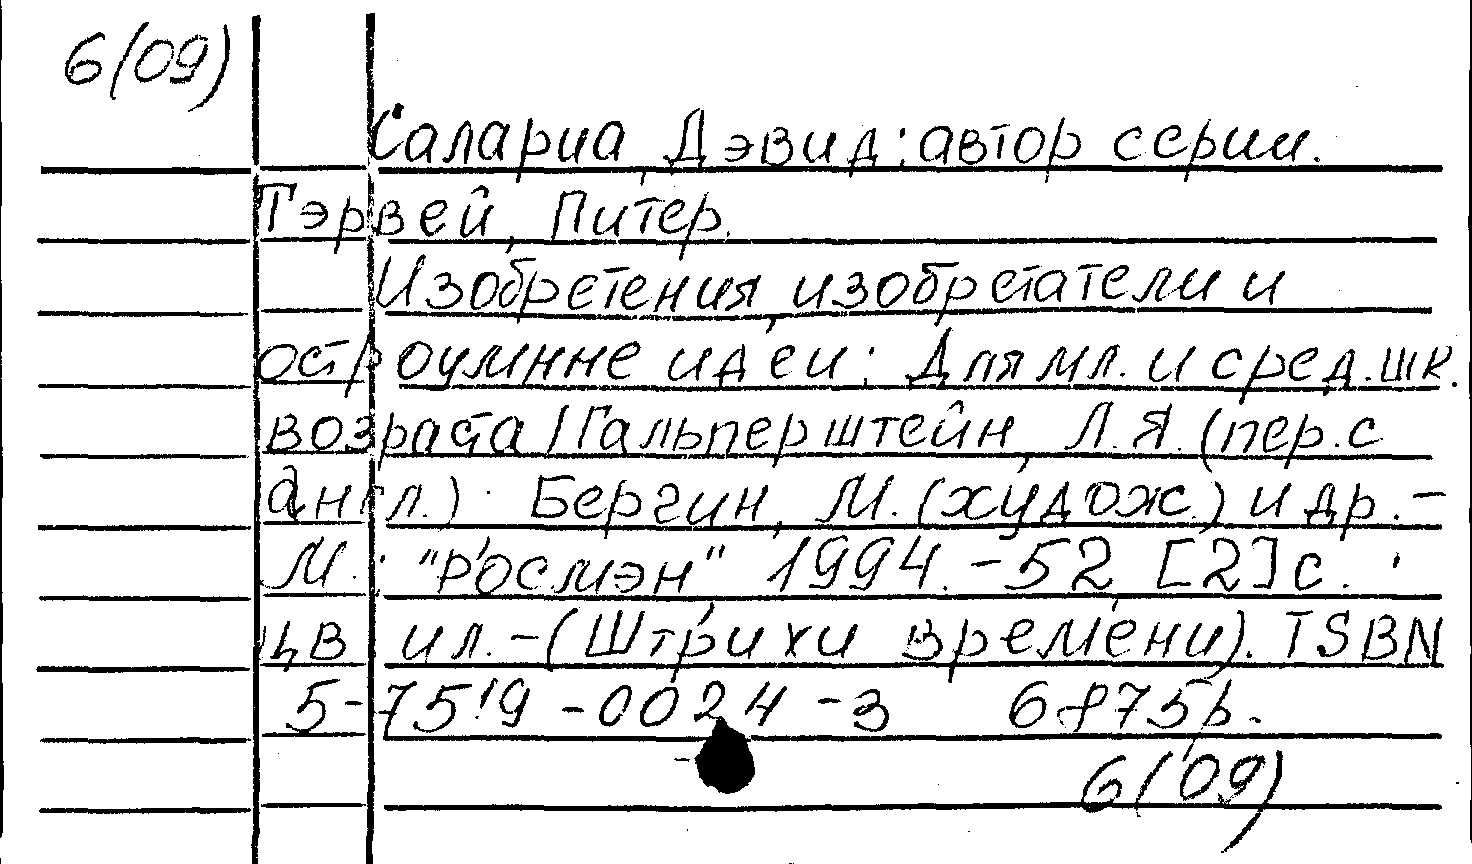 6(09)
Салариа, Дэвид: автор серии.
Тэрвей, Питер.
Изобретения, изобретатели и
остроумнне идеи: Для мл. и сред. шк.
возраста / Гальперштейн, Л.Я. (пер. с
англ.) Бергин, М. (худож.) и др. –
М.: "Росмэн" 1994. – 52, [2] с. :
цв ил. – (Штрихи времени). ISBN
5-7519-0024-3 6875р.
6(09)